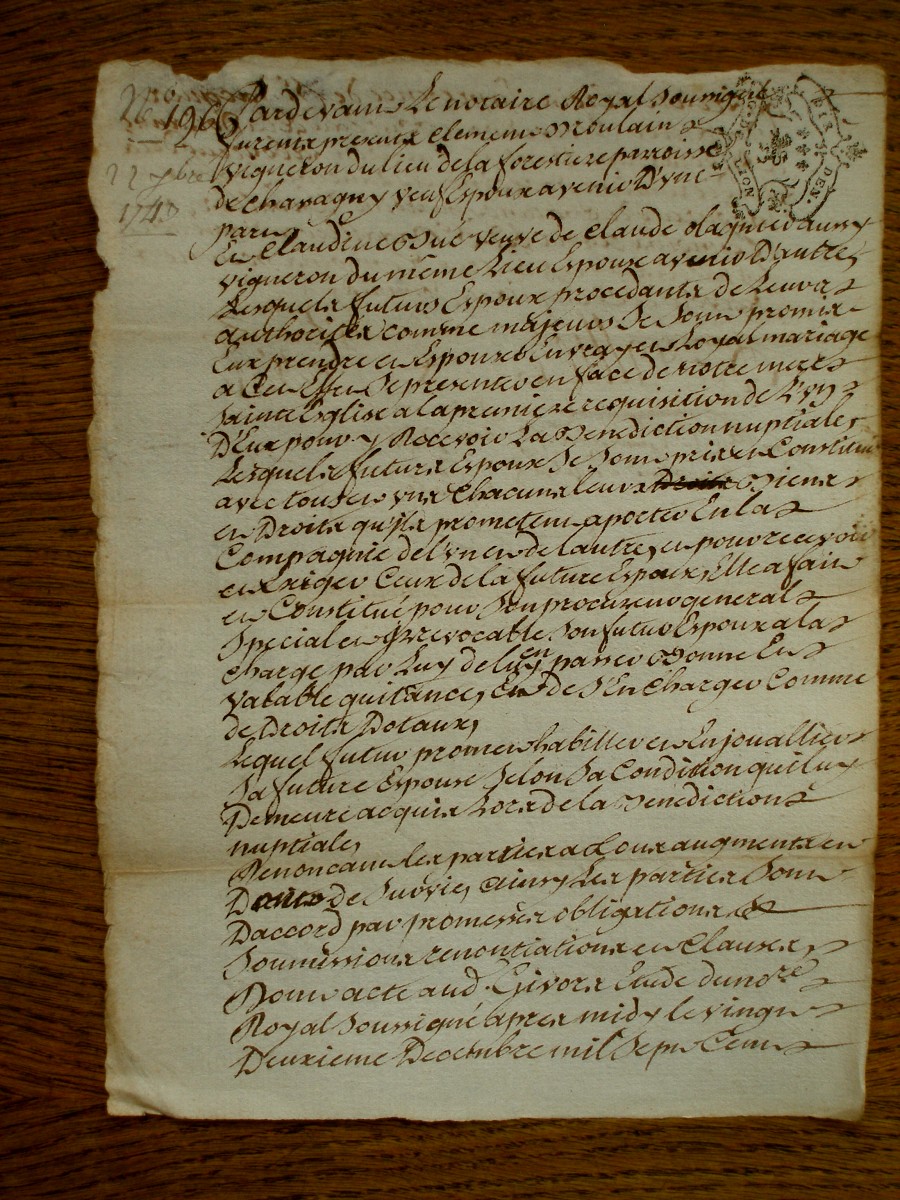 196
22 8bre
1743
Pardevant Le notaire Royal soussigné
furent present Clement Moulain
vigneron du lieu de la forestiere parroisse
de Chavagny veuf Epoux avenir D'une
part
Et Claudine veuve de Claude
vigneron du même Lieu Espouse avenir D'autre,
Lesquels futurs Espoux procedants de Leurs
authorites comme majeurs se sont promis
Eux prendre en Espoux En vray et Loyal mariage
a Cet effet se presenter en face de notre mere
sainte Eglise a la premiere requisition de L'un
D'Eux pour y Recevoir La Benediction nuptiale,
Lesquels futurs Espoux se sont pris et Constitués
avec tous et uns Chacuns leurs Droits Biens
et Droits qu'ils prometent aporter En la
Compagnie de l'un et de lautre, et pour recevoir
et Exiger Ceux de la future Espouse, Elle a fait
et Constitué pour son procureur general
special et Irrevocable son futur Espoux a la
charge par Luy de luy en passer Bonne Et
valable quitance, Et de s'En Charger Comme
de Droits Dotaux,
Lequel futur promet habiller et Enjoualler
sa future Espouse selon sa Condition qui luy
Demeure acquis Lors de la Benediction
nuptiale,
Renoncant les parties a tous augments et
Dons de survie, ainsy Les parties sont
D'accord par promesses obligations &
soumissions renontiations et Clauses,
Dont acte aud. Givors Etude du no.re
Royal soussigné apres midy le vingt
Deuxieme De octobre mil sept Cent